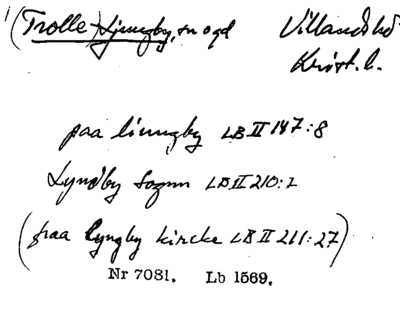 (Trolle) Ljungby, sn ogd Villands hd
Krist. l.
paa liungby LB II 147:8
Lyndby sognn LB II 210:2
(paa lyngby kircke LB II 211:27)
Nr 7081. Lb 1569.